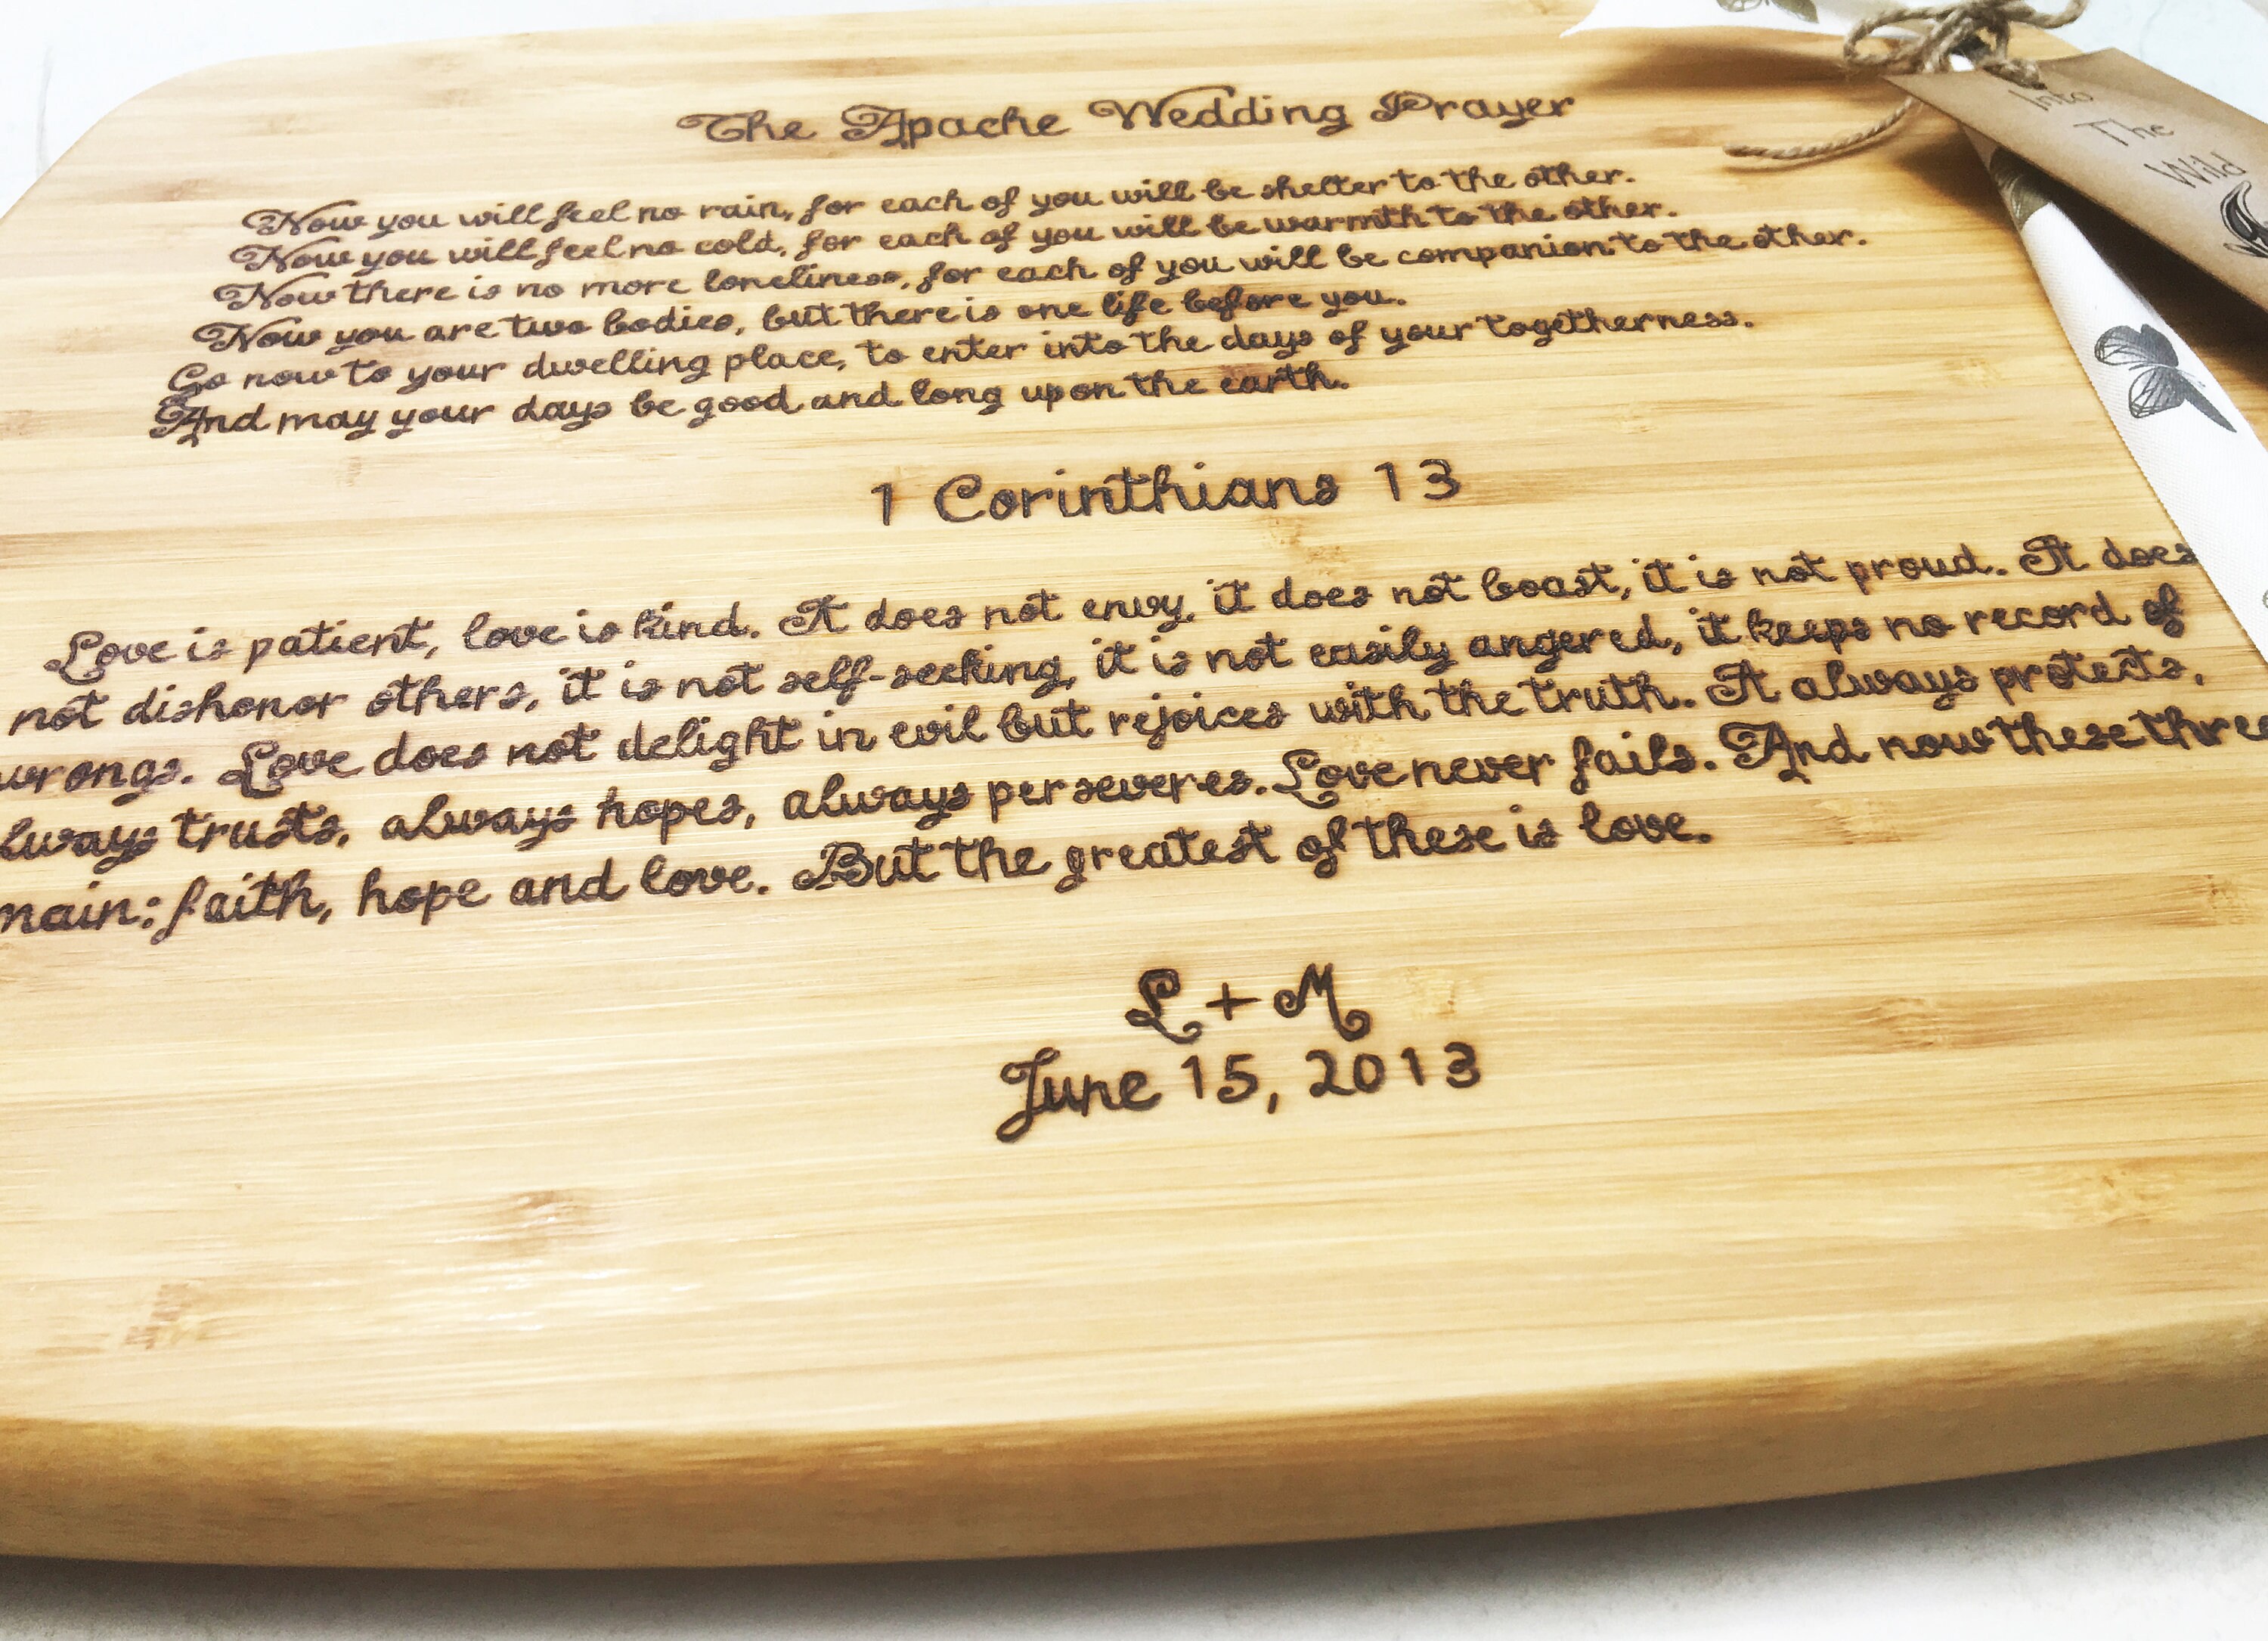 The Apache Wedding Prayer
Now you will feel no rain, for each of you will be shelter to the other.
Now you will feel no cold, for each of you will be warmth to the other.
Now there is no more loneliness, for each of you will be companion to the other.
Now you are two bodies, but there is one life before you.
Go now to your dwelling place, to enter into the days of your togetherness.
And may your days be good and long upon the earth.
1 Corinthians 13
Love is patient, love is kind. It does not envy, it does not boast, it is not proud. It does
not dishonor others, it is not self-seeking, it is not easily angered, it keeps no record of
wrongs. Love does not delight in evil but rejoices with the truth. It always protects,
lways trusts, always hopes, always perseveres. Love never fails. And now these three
main: faith, hope and love. But the greatest of these is love.
L + M
June 15, 2013
Into
The
Wild